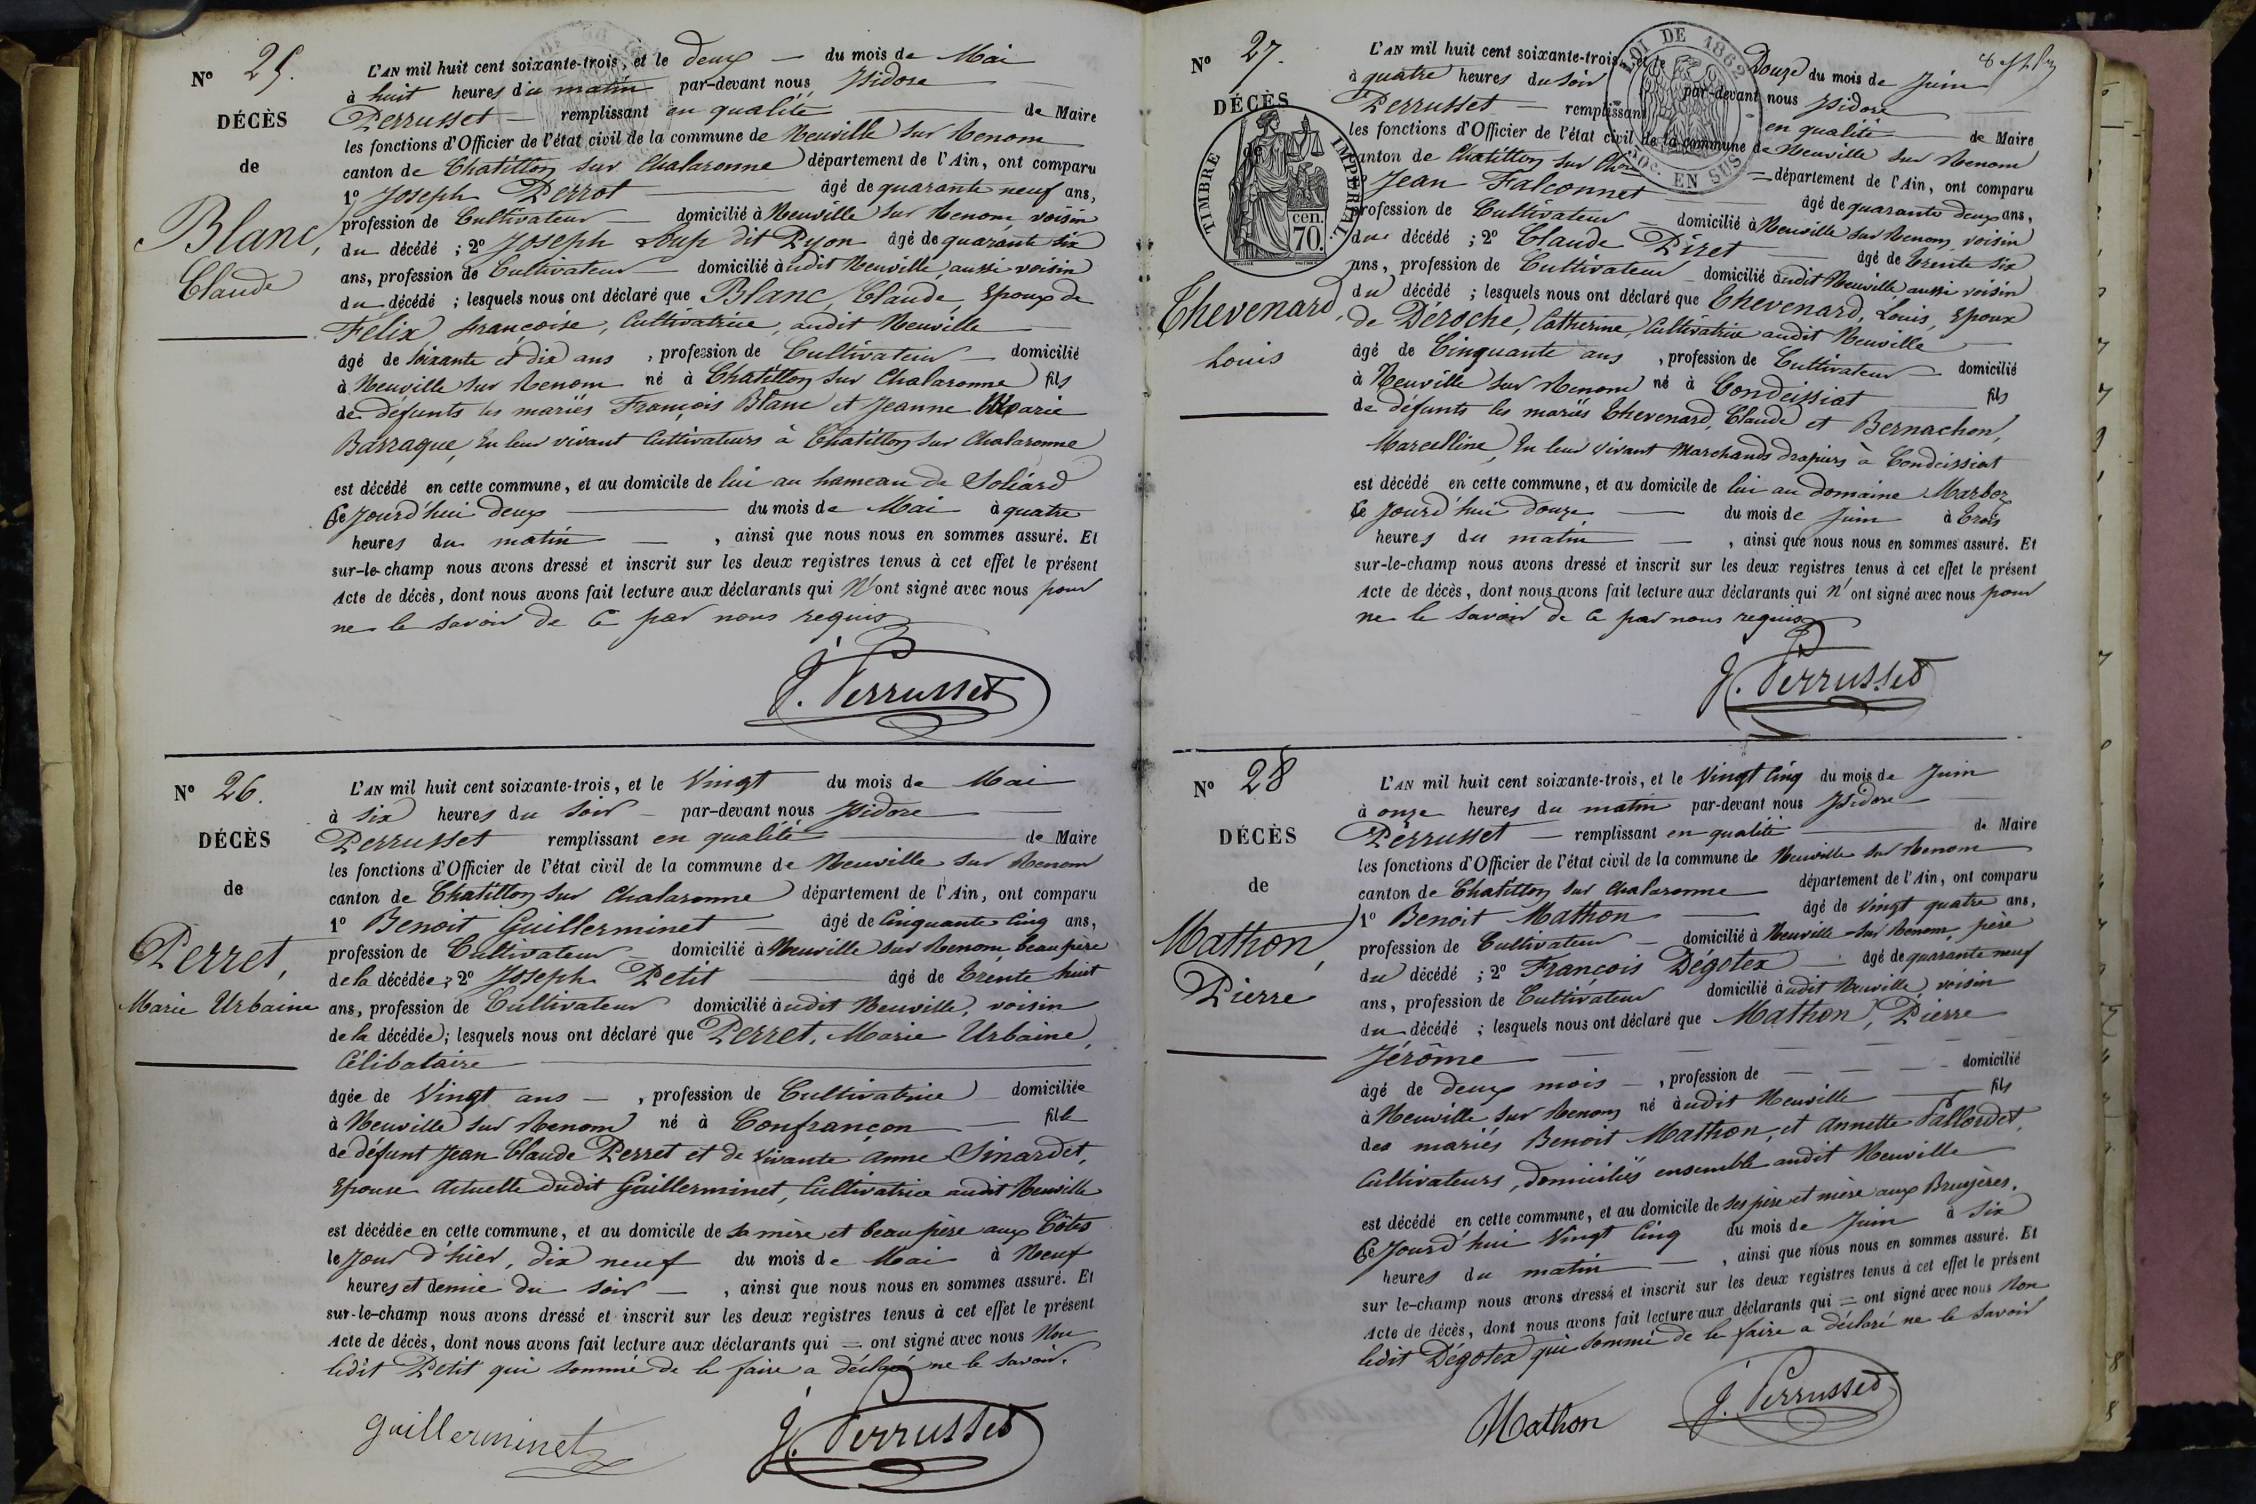 Nº 25.
DÉCÈS
de
Blanc,
Claude
L'AN mil huit cent soixante-trois, et le deux du mois de Mai
à huit heures du matin par-devant nous Isidore
Perrusset remplissant en qualité de Maire
les fonctions d'Officier de l'état civil de la commune de Neuville sur Renom
canton de Chatillon sur Chalaronne département de l'Ain, ont comparu
1º Joseph Perrot âgé de quarante neuf ans,
profession de Cultivateur domicilié à Neuville sur Renom, voisin
du décédé ; 2º Joseph Loup dit Pyon âgé de quarante six
ans, profession de Cultivateur domicilié audit Neuville, aussi voisin
du décédé ; lesquels nous ont déclaré que Blanc, Claude, Epoux de
Félix françoise, Cultivatrice, audit Neuville
âgé de soixante et dix ans , profession de Cultivateur domicilié
à Neuville sur Renom né à Chatillon sur Chalaronne fils
de défunts les mariés François Blanc et Jeanne Marie
Barraque, En leur vivant Cultivateurs à Chatillon sur Chalaronne
est décédé en cette commune, et au domicile de lui au hameau de Soliard
Ce Jourd'hui deux du mois de Mai à quatre
heures du matin , ainsi que nous nous en sommes assuré. Et
sur-le-champ nous avons dressé et inscrit sur les deux registres tenus à cet effet le présent
Acte de décès, dont nous avons fait lecture aux déclarants qui N'ont signé avec nous pour
ne le savoir de ce par nous requis
J. Perrusset
Nº 26.
DÉCÈS
de
Perret,
Marie Urbaine
L'AN mil huit cent soixante-trois, et le Vingt du mois de Mai
à six heures du soir par-devant nous Isidore
Perrusset remplissant en qualité de Maire
les fonctions d'Officier de l'état civil de la commune de Neuville sur Renom
canton de Chatillon sur Chalaronne département de l'Ain, ont comparu
1º Benoit Guillerminet âgé de Cinquante Cinq ans,
profession de Cultivateur domicilié à Neuville sur Renom, beau père
de la décédée ; 2º Joseph Petit âgé de Trente huit
ans, profession de Cultivateur domicilié audit Neuville, voisin
de la décédée ; lesquels nous ont déclaré que Perret, Marie Urbaine,
Célibataire
âgée de Vingt ans , profession de Cultivatrice domiciliée
à Neuville sur Renom né à Confrançon fille
de défunt Jean Claude Perret et de vivante Anne Sinardet,
Epouse Actuelle dudit Guillerminet, Cultivatrice audit Neuville
est décédée en cette commune, et au domicile de sa mère et beau père aux Côtes
le Jour d'hier, dix neuf du mois de Mai à Neuf
heures et demie du soir , ainsi que nous nous en sommes assuré. Et
sur-le-champ nous avons dressé et inscrit sur les deux registres tenus à cet effet le présent
Acte de décès, dont nous avons fait lecture aux déclarants qui = ont signé avec nous Non
ledit Petit qui sommé de le faire a déclaré ne le savoir.
Guillerminet
J. Perrusset
Nº 27.
DÉCÈS
TIMBRE IMPÉRIAL.
cen. 70.
LOI DE 1862
10c. EN SUS
Thevenard,
Louis
L'AN mil huit cent soixante-trois, et le Douze du mois de Juin
à quatre heures du soir par-devant nous Isidore
Perrusset remplissant en qualité de Maire
les fonctions d'Officier de l'état civil de la commune de Neuville sur Renom
canton de Chatillon sur département de l'Ain, ont comparu
1º Jean Falconnet âgé de quarante deux ans,
profession de Cultivateur domicilié à Neuville sur Renom, voisin
du décédé ; 2º Claude Piret âgé de trente six
ans, profession de Cultivateur domicilié audit Neuville aussi voisin
du décédé ; lesquels nous ont déclaré que Thevenard, Louis, Epoux
de Déroche, Catherine, Cultivatrice audit Neuville
âgé de Cinquante ans , profession de Cultivateur domicilié
à Neuville sur Renom né à Condeissiat fils
de défunts les mariés Thevenard, Claude et Bernachon,
Marcelline, En leur vivant Marchands drapiers à Condeissiat
est décédé en cette commune, et au domicile de lui au domaine Marboz
Ce Jourd'hui douze du mois de Juin à trois
heures du matin , ainsi que nous nous en sommes assuré. Et
sur-le-champ nous avons dressé et inscrit sur les deux registres tenus à cet effet le présent
Acte de décès, dont nous avons fait lecture aux déclarants qui n'ont signé avec nous pour
ne le savoir de ce par nous requis
J. Perrusset
Nº 28
DÉCÈS
de
Mathon,
Pierre
L'AN mil huit cent soixante-trois, et le Vingt Cinq du mois de Juin
à onze heures du matin par-devant nous Isidore
Perrusset remplissant en qualité de Maire
les fonctions d'Officier de l'état civil de la commune de Neuville sur Renom
canton de Chatillon sur Chalaronne département de l'Ain, ont comparu
1º Benoit Mathon âgé de vingt quatre ans,
profession de Cultivateur domicilié à Neuville sur Renom, père
du décédé ; 2º François Dégotex âgé de quarante neuf
ans, profession de Cultivateur domicilié audit Neuville, voisin
du décédé ; lesquels nous ont déclaré que Mathon, Pierre
Jérôme
âgé de deux mois , profession de domicilié
à Neuville sur Renom né audit Neuville fils
des mariés Benoit Mathon, et Annette Pallordet,
Cultivateurs, domiciliés ensemble audit Neuville
est décédé en cette commune, et au domicile de ses père et mère aux Bruyères.
Ce Jourd'hui Vingt Cinq du mois de Juin à six
heures du matin , ainsi que nous nous en sommes assuré. Et
sur le-champ nous avons dressé et inscrit sur les deux registres tenus à cet effet le présent
Acte de décès, dont nous avons fait lecture aux déclarants qui = ont signé avec nous Non
ledit Dégotex qui sommé de le faire a déclaré ne le savoir
Mathon
J. Perrusset